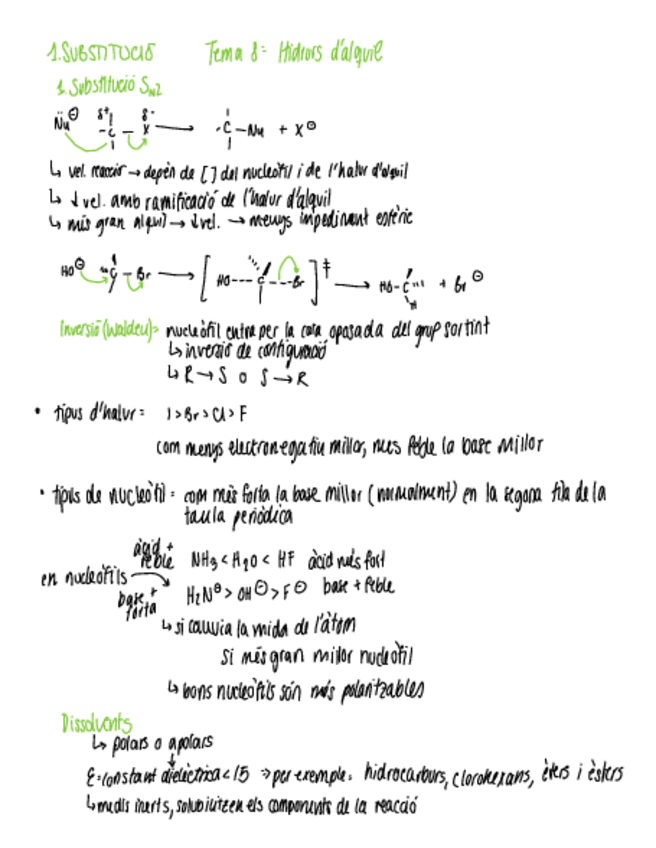 1.SUBSTITUCIÓ Tema 8= Hidrurs d'alquil
1. Substitució SN2
Nu⊖ δ+ δ-
-C-X → -C-Nu + X⊖
↳ vel. reacció → depèn de [ ] del nucleòfil i de l'halur d'alquil
↳ ↓vel. amb ramificació de l'halur d'alquil
↳ més gran alquil → ↓vel. → menys impediment estèric
HO⊖ C-Br → [HO---C---Br]‡ → HO-C + Br⊖
Inversió (Walden)= nucleòfil entra per la cara oposada del grup sortint
↳ inversió de configuració
↳ R → S o S → R
• tipus d'halur= I > Br > Cl > F
com menys electronegatiu millor, mes feble la base millor
• tipus de nucleòfil = com més forta la base millor (normalment) en la segona fila de la
taula periòdica
àcid +
feble NH3 < H2O < HF àcid més fort
en nucleòfils
base +
forta H2N⊖ > OH⊖ > F⊖ base + feble
↳ si canvia la mida de l'àtom
si més gran millor nucleòfil
↳ bons nucleòfils són més polaritzables
Dissolvents
↳ polars o apolars
ε=constant dielèctrica < 15 ⇒ per exemple: hidrocarburs, clorohexans, èters i èsters
↳ medis inerts, solubilitzen els components de la reacció